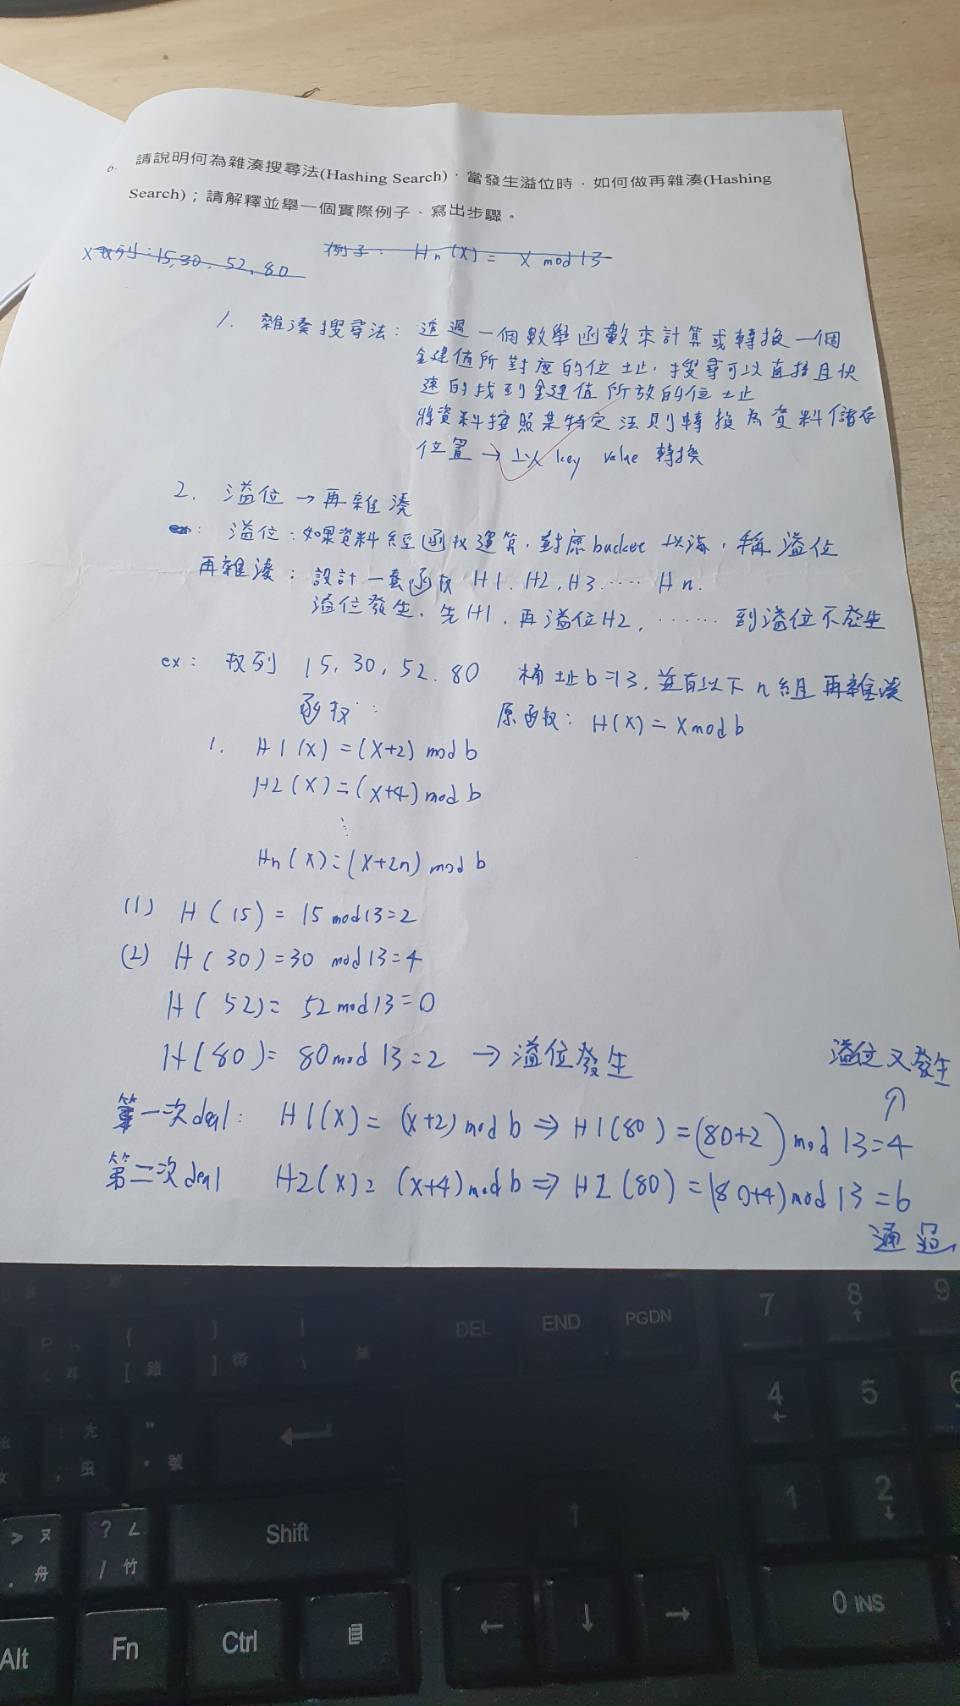 6. 請說明何為雜湊搜尋法(Hashing Search)，當發生溢位時，如何做再雜湊(Hashing
Search)；請解釋並舉一個實際例子、寫出步驟。
X數列:15,30、52,80
例子: Hn(X)= X mod 13
1. 雜湊搜尋法: 透過一個數學函數來計算或轉換一個
鍵值所對應的位址，搜尋可以直接且快
速的找到鍵值所放的位址
將資料按照某特定法則轉換為資料儲存
位置→以 key value 轉換
2. 溢位→再雜湊
ex: 溢位:如果資料經函數運算，對應bucket 以滿，稱溢位
再雜湊: 設計一套函數 H1、H2、H3..... Hn.
溢位發生，先H1，再溢位H2, ...... 到溢位不發生
ex: 數列 15、30、52、80 桶址b=13，並有以下n組再雜湊
函數: 原函數: H(X)=X mod b
1. H1(X)=(X+2) mod b
H2(X)=(X+4) mod b
⋮
Hn(X)=(X+2n) mod b
(1) H(15)= 15 mod 13=2
(2) H(30)=30 mod 13=4
H(52)= 52 mod 13=0
H(80)= 80 mod 13=2 → 溢位發生
溢位又發生
第一次deal: H1(X)= (X+2) mod b ⇒ H1(80)=(80+2) mod 13=4
第二次deal H2(X)= (X+4) mod b ⇒ H2(80)=(80+4) mod 13=6
通過
7
8
9
DEL
END
PGDN
{
[ 術
}
]
|
\
4
5
6
"
' 號
1
2
>
.
?
/ 竹
Shift
0 INS
Alt
Fn
Ctrl
←
↓
→